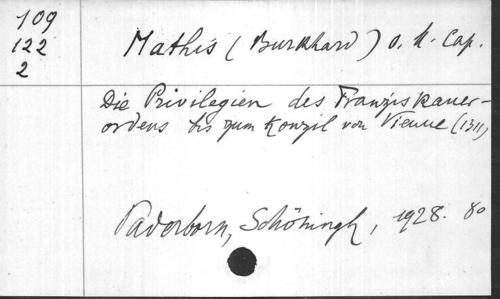 109
122
2
Mathis (Burkhard) O. M. Cap.
Die Privilegien des Franziskaner-
ordens bis zum Konzil von Vienne (1311)
Paderborn, Schöningh, 1928. 8o